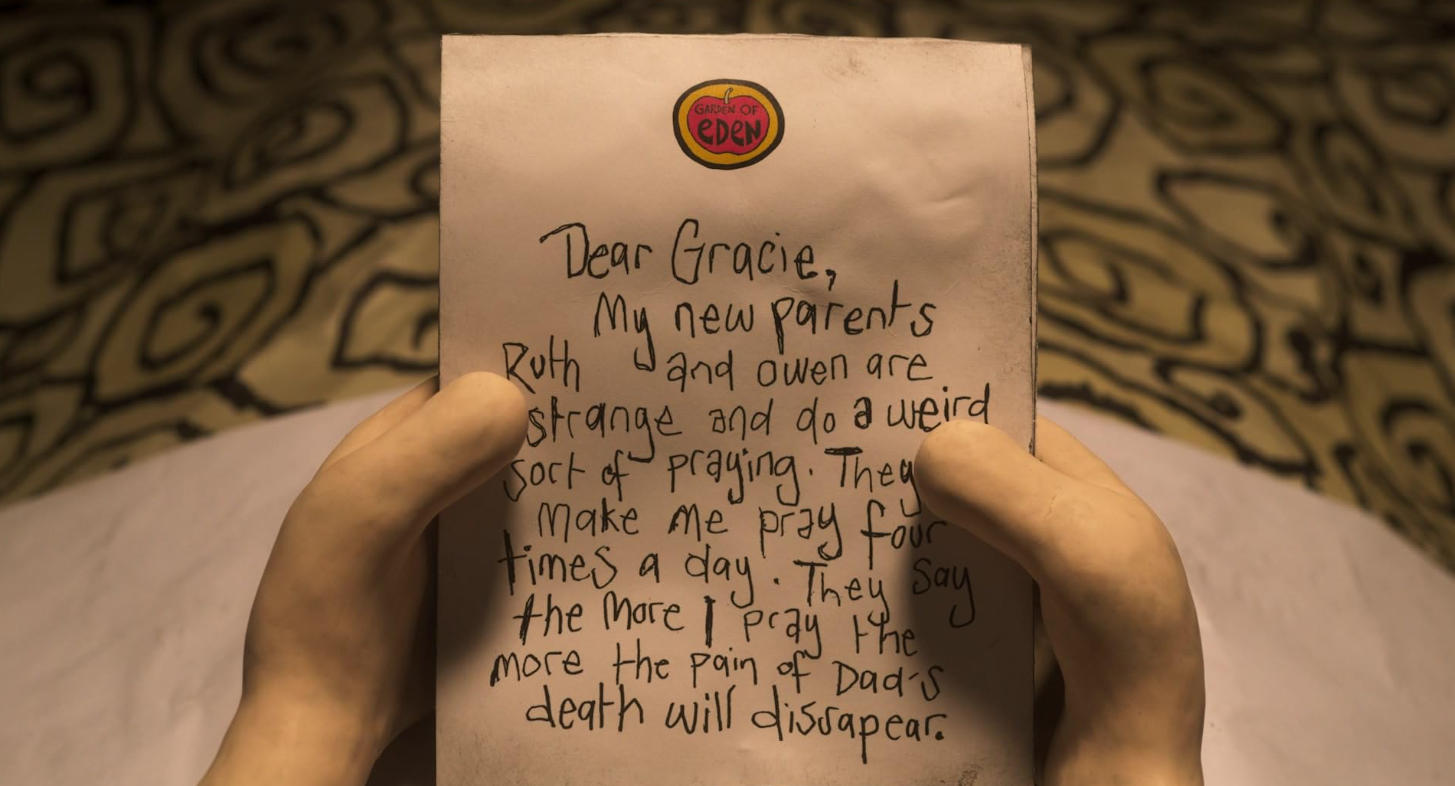 GARDEN OF
eDEN
Dear Gracie,
My new parents
Ruth and owen are
strange and do a weird
sort of praying. They
make me pray four
times a day. They say
the more I pray the
more the pain of Dad's
death will dissapear.